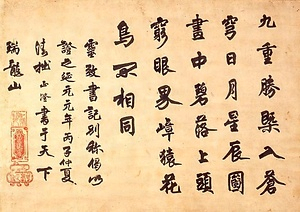 九重勝槩入蒼
穹日月星辰圖
畫中碧落上頭
窮眼界嶂猿花
鳥相同
靈致書記別稱偈以
證之延元元年丙子仲夏
清拙正澄書于天下
瑞龍山